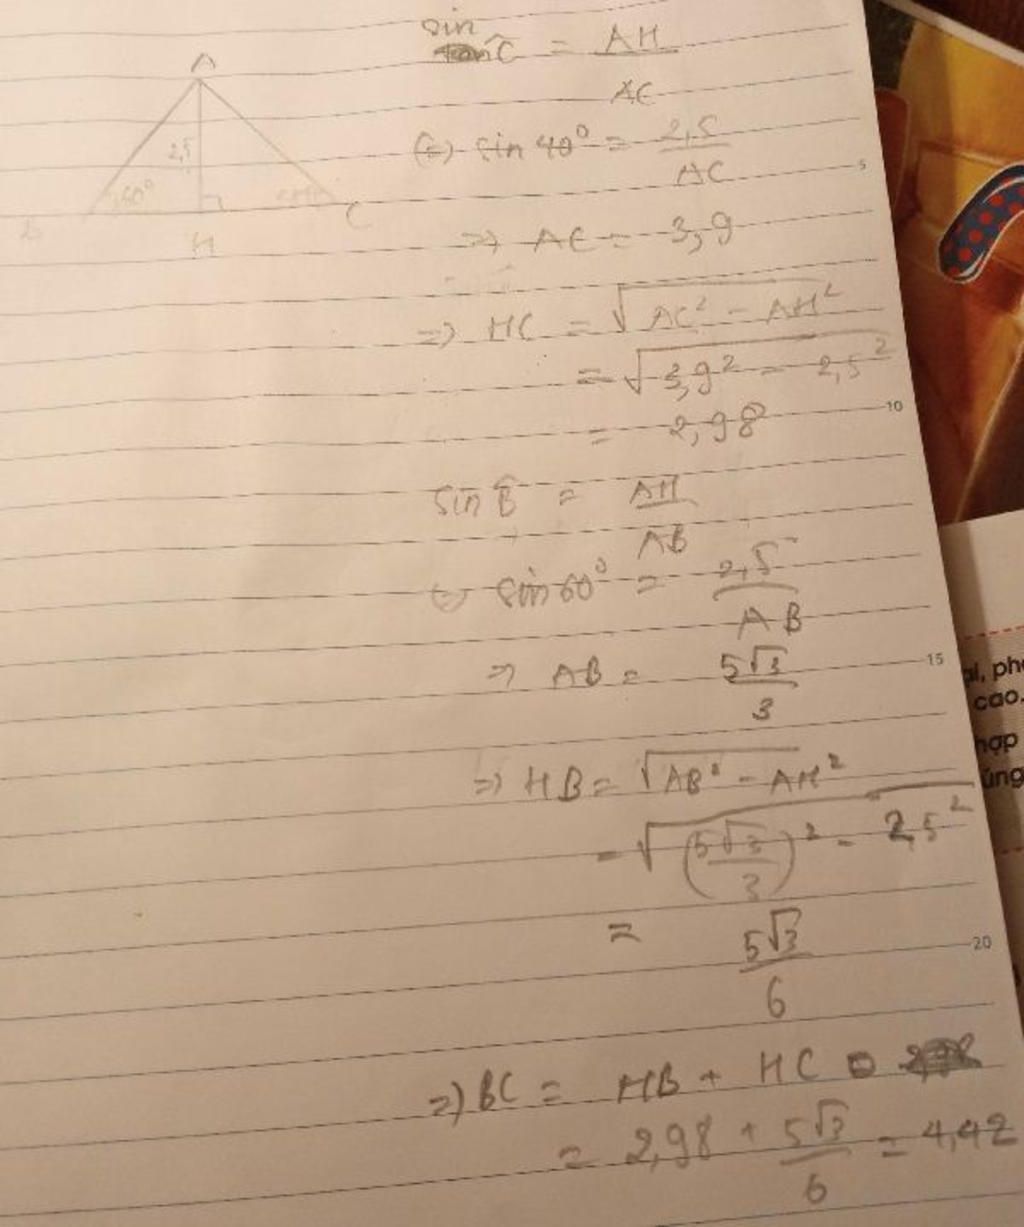 A
2,5
60°
B
H
C
sin Ĉ = AH / AC
(=) sin 40° = 2,5 / AC
=> AC = 3,9
=> HC = √(AC² - AH²)
= √(3,9² - 2,5²)
= 2,98
sin B̂ = AH / AB
sin 60° = 2,5 / AB
=> AB = 5√3 / 3
=> HB = √(AB² - AH²)
= √((5√3 / 3)² - 2,5²)
= 5√3 / 6
=> BC = HB + HC
= 2,98 + 5√3 / 6 = 4,42
5
10
15
20
cao,
ợp
úng